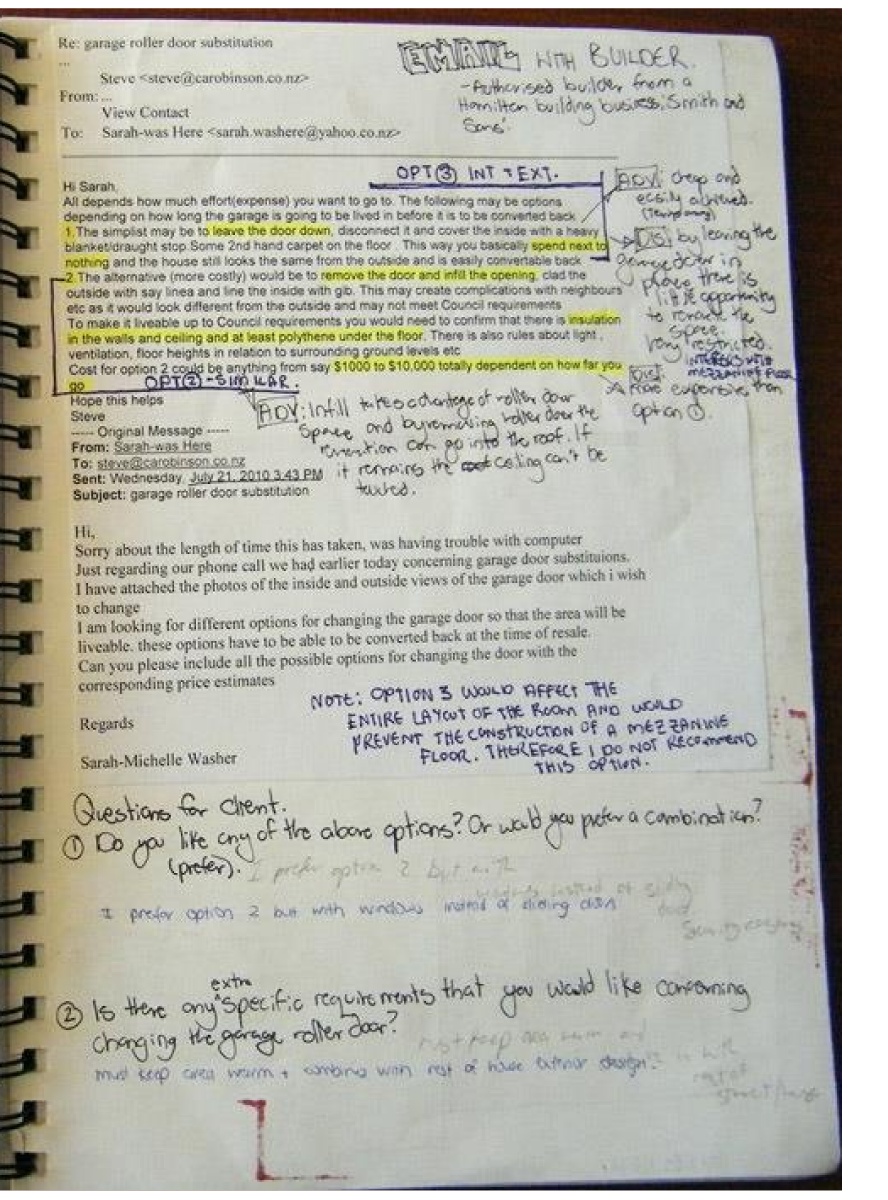 Re: garage roller door substitution
...
Steve <steve@carobinson.co.nz>
From: ...
View Contact
To: Sarah-was Here <sarah.washere@yahoo.co.nz>
EMAIL WITH BUILDER.
- Authorised builder from a
Hamilton building business, 'Smith and
Sons'.
OPT ③ INT + EXT.
Hi Sarah,
All depends how much effort(expense) you want to go to. The following may be options
depending on how long the garage is going to be lived in before it is to be converted back
1.The simplist may be to leave the door down, disconnect it and cover the inside with a heavy
blanket/draught stop.Some 2nd hand carpet on the floor . This way you basically spend next to
nothing and the house still looks the same from the outside and is easily convertable back
2.The alternative (more costly) would be to remove the door and infill the opening, clad the
outside with say linea and line the inside with gib. This may create complications with neighbours
etc as it would look different from the outside and may not meet Council requirements
To make it liveable up to Council requirements you would need to confirm that there is insulation
in the walls and ceiling and at least polythene under the floor. There is also rules about light ,
ventilation, floor heights in relation to surrounding ground levels etc
Cost for option 2 could be anything from say $1000 to $10,000 totally dependent on how far you
go
ADV: cheap and
easily achieved.
(temporary)
DIS: by leaving the
garage door in
place there is
little opportunity
to renovate the
space.
Very restricted.
INTERFERS WITH
MEZZANINE FLOOR
DIS:
more expensive than
option ①.
OPT ② - SIMILAR.
ADV: Infill takes advantage of roller door
space and by removing roller door the
can go into the roof. If
it remains the ceiling can't be
Hope this helps
Steve
----- Original Message -----
From: Sarah-was Here
To: steve@carobinson.co.nz
Sent: Wednesday, July 21, 2010 3:43 PM
Subject: garage roller door substitution
Hi,
Sorry about the length of time this has taken, was having trouble with computer
Just regarding our phone call we had earlier today concerning garage door substituions.
I have attached the photos of the inside and outside views of the garage door which i wish
to change
I am looking for different options for changing the garage door so that the area will be
liveable. these options have to be able to be converted back at the time of resale.
Can you please include all the possible options for changing the door with the
corresponding price estimates
Regards
Sarah-Michelle Washer
NOTE: OPTION 3 WOULD AFFECT THE
ENTIRE LAYOUT OF THE ROOM AND WOULD
PREVENT THE CONSTRUCTION OF A MEZZANINE
FLOOR. THEREFORE I DO NOT RECOMMEND
THIS OPTION.
Questions for client.
① Do you like any of the above options? Or would you prefer a combination?
(prefer).
I prefer option 2 but with
windows instead of sliding
door
I prefer option 2 but with windows instead of sliding door
② Is there any extra specific requirements that you would like concerning
changing the garage roller door?
must keep area warm and
must keep area warm + combine with rest of house exterior design.